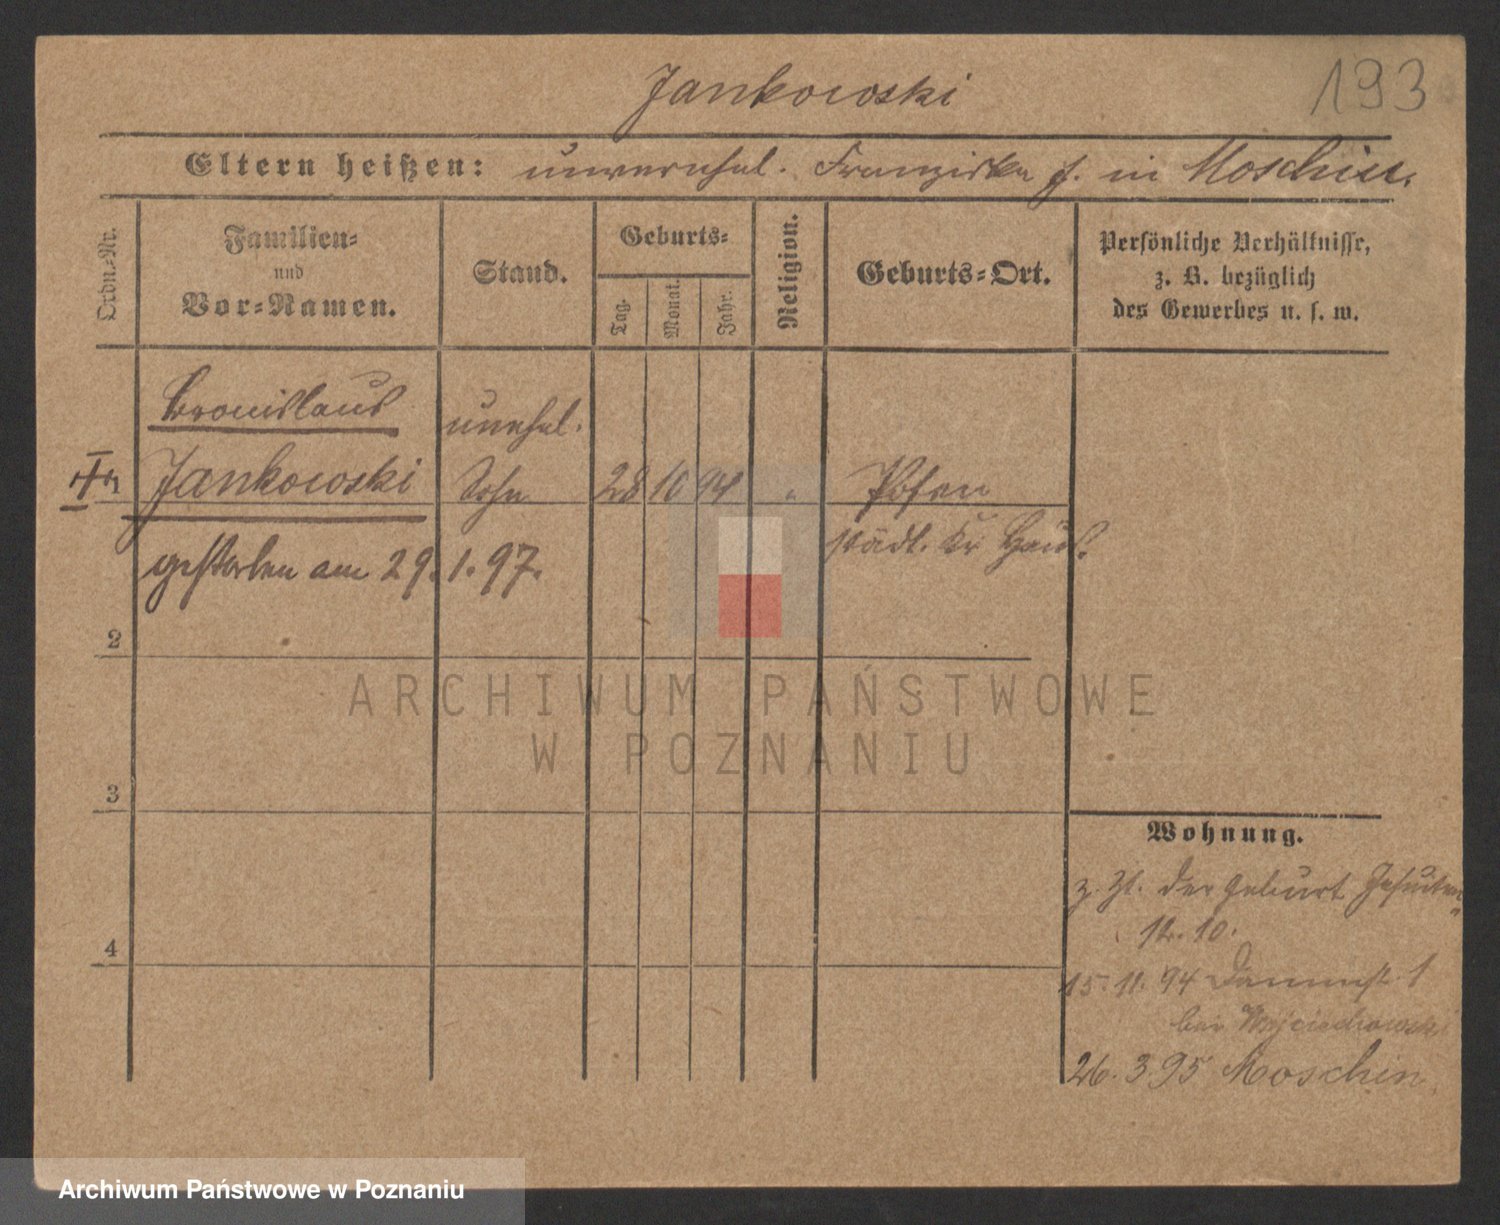 Jankowski
193
Eltern heißen: unverehel. Franziska J. in Moschin.
Ordn.-Nr.
Familien-
und
Vor-Namen.
Stand.
Geburts-
Tag.
Monat.
Jahr.
Religion.
Geburts-Ort.
Persönliche Verhältnisse,
z. B. bezüglich
des Gewerbes u. s. w.
Bronislaus unehel.
Jankowski Sohn 28 10 94 " Posen
städt. Kr. Haus.
gestorben am 29. 1. 97.
2
ARCHIWUM PAŃSTWOWE
W POZNANIU
3
Wohnung.
z. Zt. der Geburt Jesuiten-
str. 10.
4
15. 11. 94 Dammstr. 1
bei Wojciechowski
26. 3. 95 Moschin
Archiwum Państwowe w Poznaniu